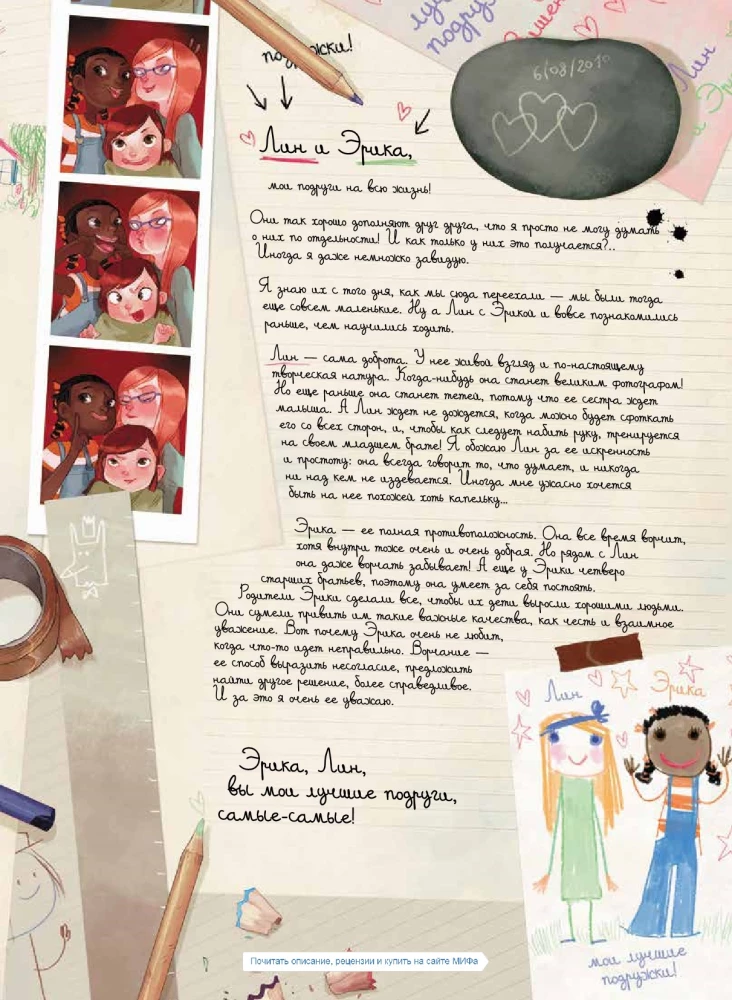 лучшие
подружки!
6/08/2010
подружки!
Лин
и Эрика,
Лин и Эрика,
мои подруги на всю жизнь!
Они так хорошо дополняют друг друга, что я просто не могу думать
о них по отдельности! И как только у них это получается?..
Иногда я даже немножко завидую.
Я знаю их с того дня, как мы сюда переехали — мы были тогда
еще совсем маленькие. Ну а Лин с Эрикой и вовсе познакомились
раньше, чем научились ходить.
Лин — сама доброта. У нее живой взгляд и по-настоящему
творческая натура. Когда-нибудь она станет великим фотографом!
Но еще раньше она станет тетей, потому что ее сестра ждет
малыша. А Лин ждет не дождется, когда можно будет сфоткать
его со всех сторон, и, чтобы как следует набить руку, тренируется
на своем младшем брате! Я обожаю Лин за ее искренность
и простоту: она всегда говорит то, что думает, и никогда
ни над кем не издевается. Иногда мне ужасно хочется
быть на нее похожей хоть капельку...
Эрика — ее полная противоположность. Она все время ворчит,
хотя внутри тоже очень и очень добрая. Но рядом с Лин
она даже ворчать забывает! А еще у Эрики четверо
старших братьев, поэтому она умеет за себя постоять.
Родители Эрики сделали все, чтобы их дети выросли хорошими людьми.
Они сумели привить им такие важные качества, как честь и взаимное
уважение. Вот почему Эрика очень не любит,
когда что-то идет неправильно. Ворчание —
ее способ выразить несогласие, предложить
найти другое решение, более справедливое.
И за это я очень ее уважаю.
Эрика, Лин,
вы мои лучшие подруги,
самые-самые!
Лин Эрика
мои лучшие
подружки!
Почитать описание, рецензии и купить на сайте МИФа